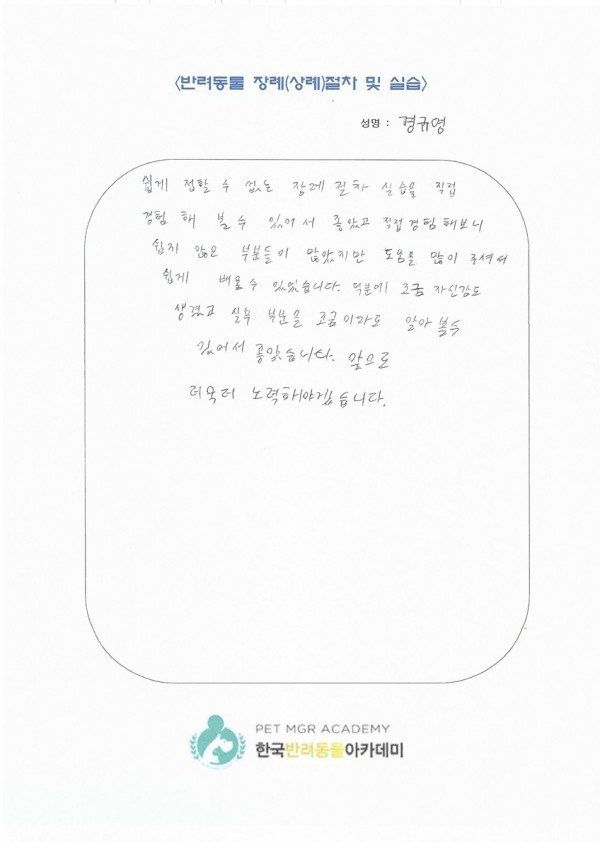 <반려동물 장례(상례)절차 및 실습>
성명 : 경규영
쉽게 접할 수 없는 장례 절차 실습을 직접
경험 해 볼 수 있어서 좋았고 직접경험해보니
쉽지 않은 부분들이 많았지만 도움을 많이 주셔서
쉽게 배울수 있었습니다. 덕분에 조금 자신감도
생겼고 실무 부분을 조금이라도 알아 볼수
있어서 좋았습니다. 앞으로
더욱더 노력해야겠습니다.
PET MGR ACADEMY
한국반려동물아카데미